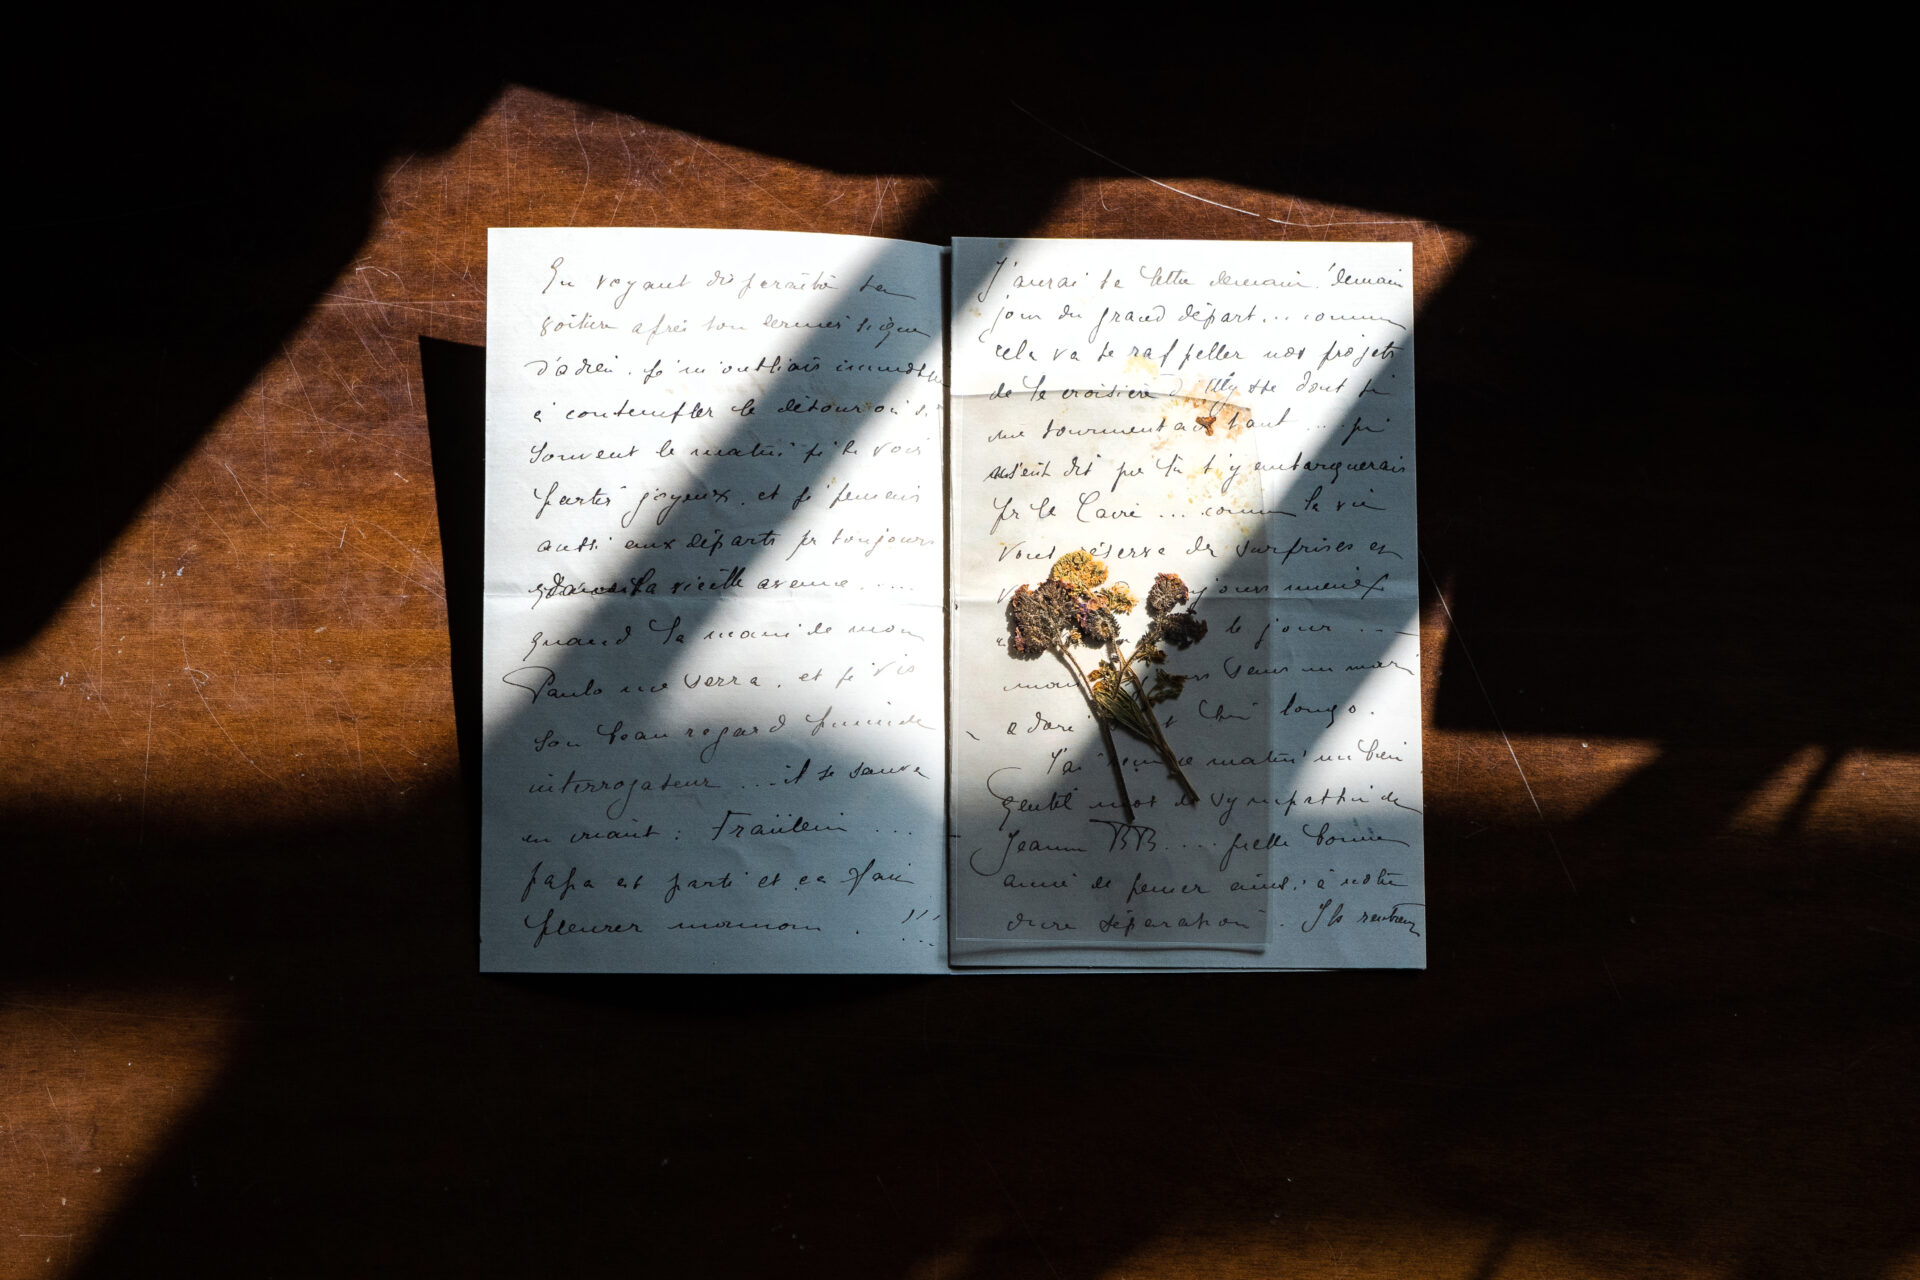 En voyant disparaître ta
voiture après ton dernier signe
d'adieu. je m'oubliais
à contempler le détour où si
souvent le matin je te vois
partir joyeux. et je pensais
aussi aux départs pr toujours
la vieille avenue ....
quand la main de mon
Paulo me serra. et je vis
son beau regard humide
interrogateur ... il se sauva
en criant : Fraülein ...
papa est parti et ça fait
pleurer maman . !!!
J'aurai ta lettre demain! demain
jour du grand départ... comme
cela va te rappeller nos projets
de la croisière dont tu
me tourmentais tant ...
m'eût dit que tu t'y embarquerais
pr le Caire ... comme la vie
vous réserve de surprises et
jours mieux
le jour ...
mon un mari
adoré et longo.
J'ai ce matin un bien
gentil mot de sympathie de
Jeanne BB.... quelle bonne
amie de penser ainsi à notre
dure séparation. Ils